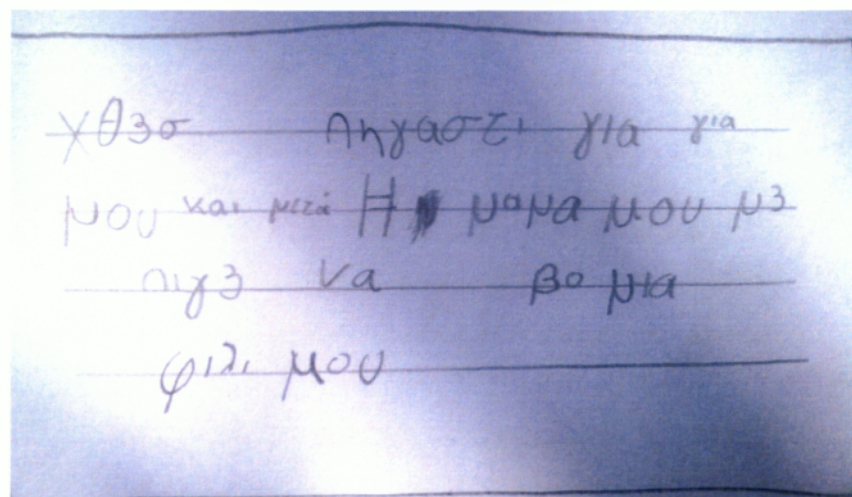 χθεσ πηγαστι για για
μου και μετά Η μαμα μου με
πιγε να βο μια
φιλι μου